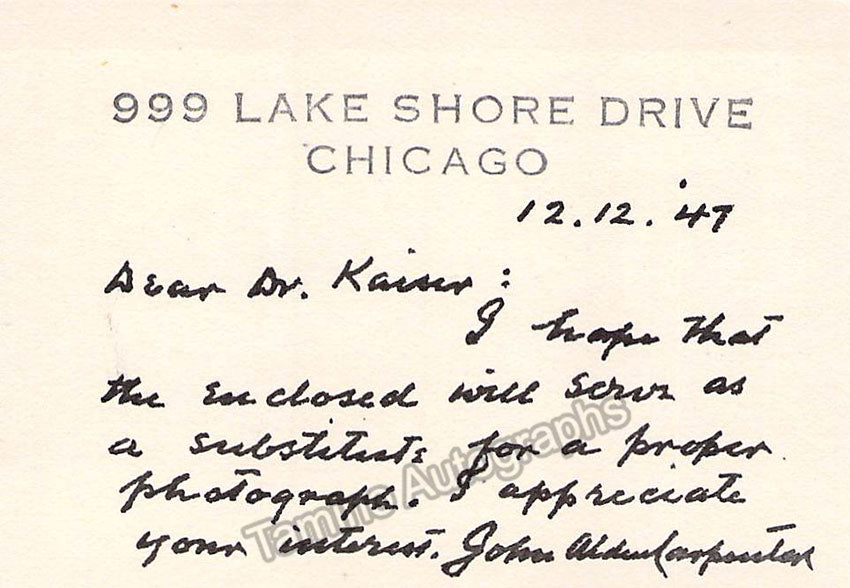 999 LAKE SHORE DRIVE
CHICAGO
12.12.'47
Dear Dr. Kaiser:
I hope that
the enclosed will serve as
a substitute for a proper
photograph. I appreciate
your interest. John Alden Carpenter
Tamino Autographs